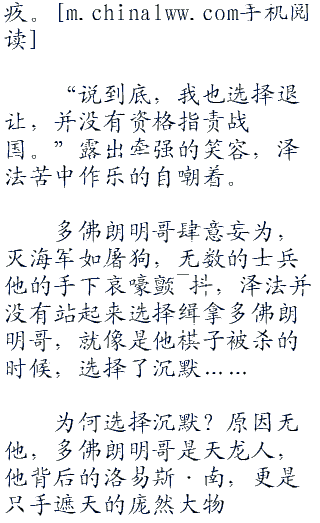 疚。[m.china1ww.com手机阅
读]
“说到底，我也选择退
让，并没有资格指责战
国。”露出牵强的笑容，泽
法苦中作乐的自嘲着。
多佛朗明哥肆意妄为，
灭海军如屠狗，无数的士兵
他的手下哀嚎颤抖，泽法并
没有站起来选择缉拿多佛朗
明哥，就像是他祺子被杀的
时候，选择了沉默……
为何选择沉默？原因无
他，多佛朗明哥是天龙人，
他背后的洛易斯·南，更是
只手遮天的庞然大物